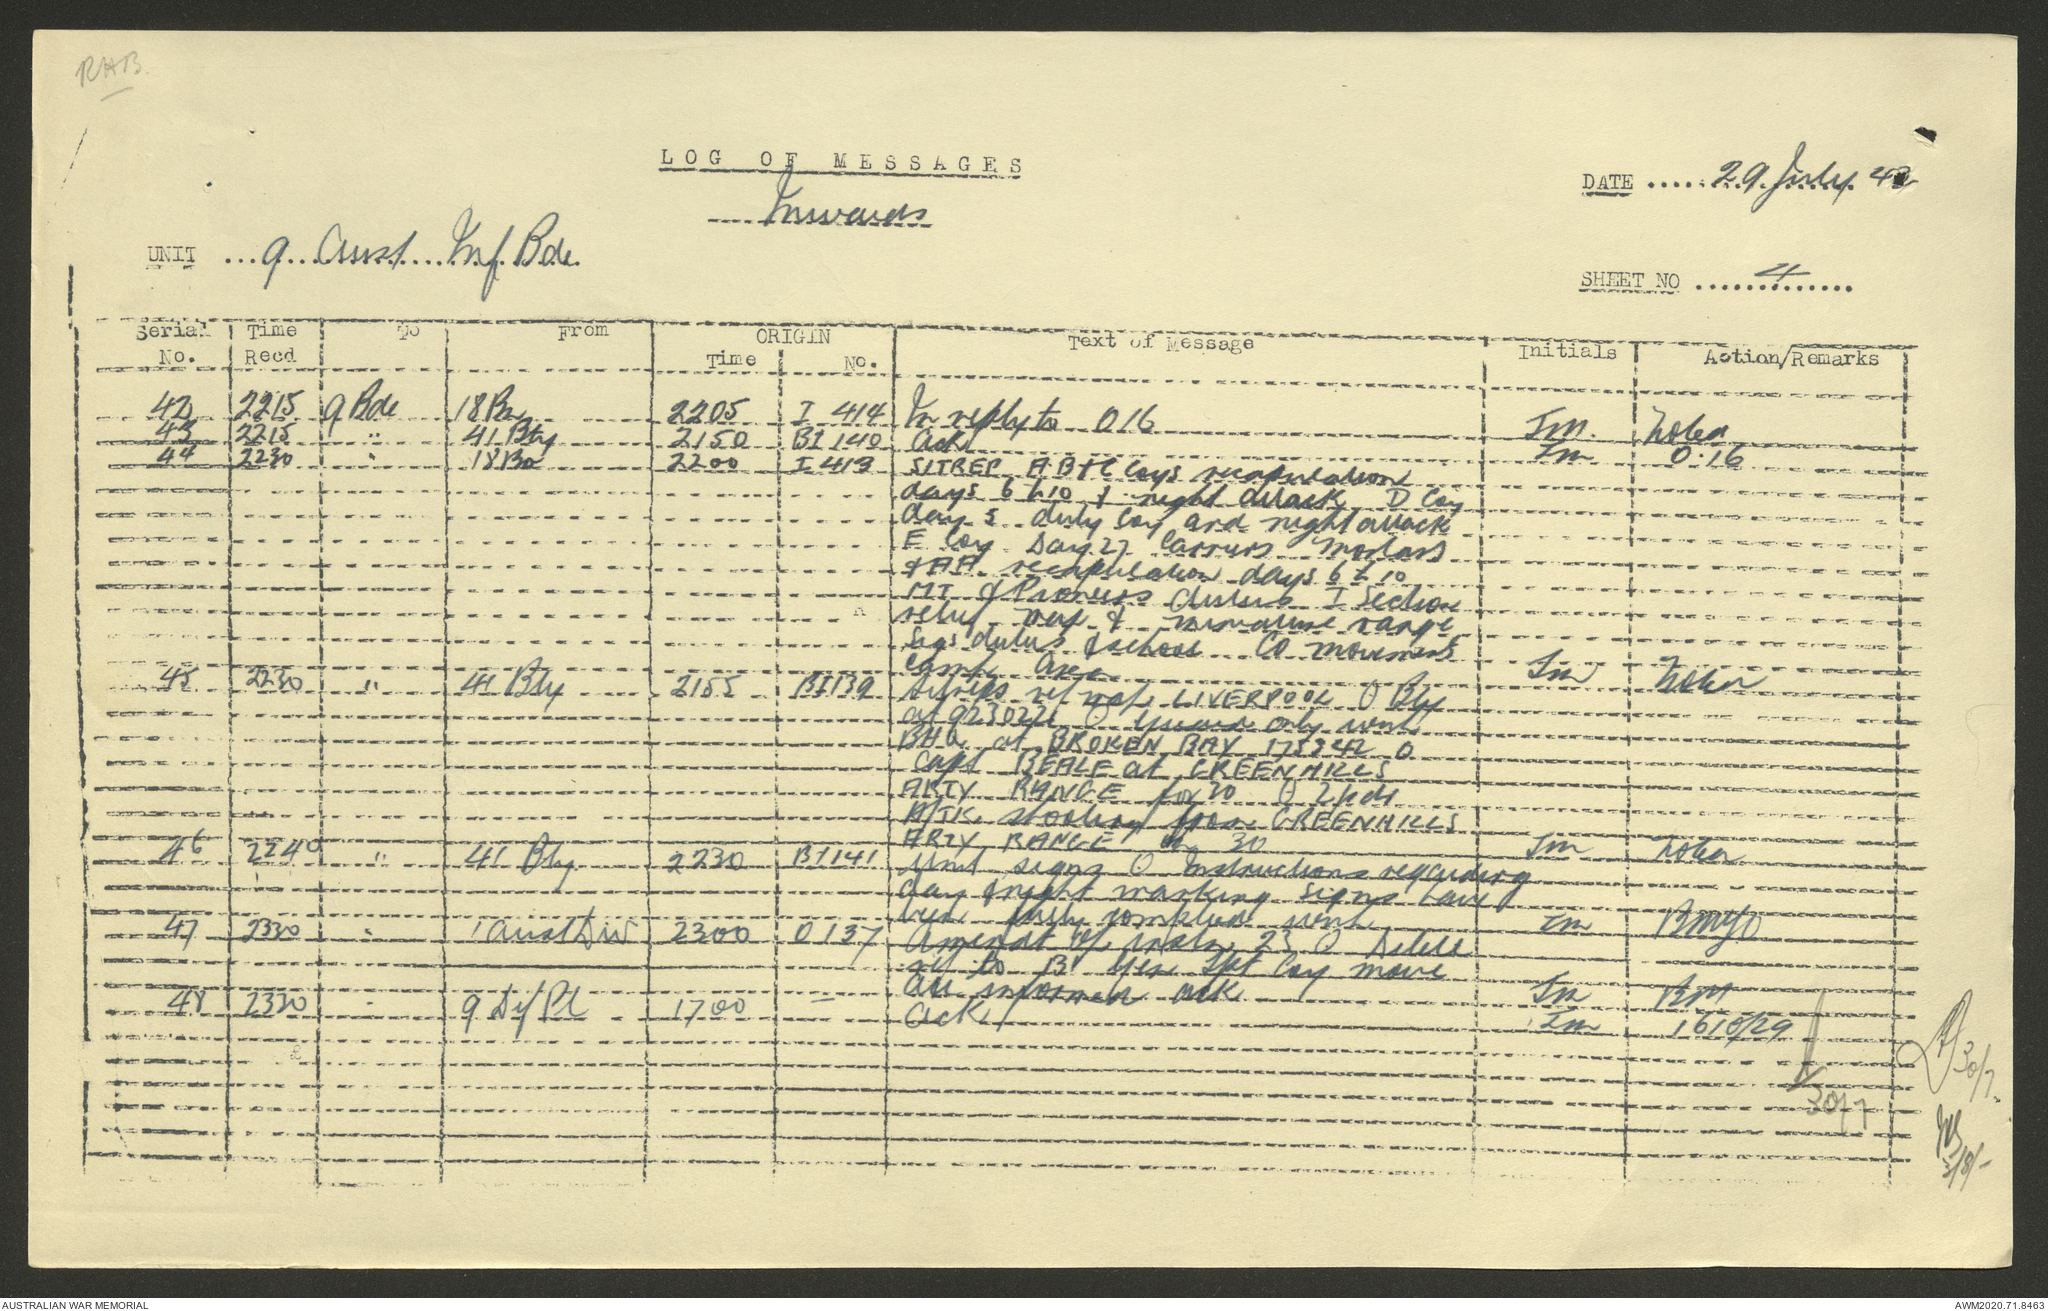 RHB
LOG OF MESSAGES
Inwards
DATE 29 July 42
UNIT 9 Aust Inf Bde
SHEET NO 4
Serial No. Time Recd To From ORIGIN Time No. Text of Message Initials Action/Remarks
42 2215 9 Bde 18 Bn 2205 I 414 In reply to O16 Jm. Noted
43 2215 " 41 Bty 2150 BI 140 Ack Jm O.16
44 2230 " 18 Bn 2200 I 413 SITREP A B & C Coys recapitulation
days 6 to 10 & night attack D Coy
day 5 duty Coy and night attack
E Coy Day 27 Carriers Mortars
& AA recapitulation days 6 to 10
MT & Pioneers duties I Section
relief map & miniature range
Sigs duties & school CO movements
Camp Area Jm Noted
45 2230 " 41 Bty 2155 BI139 Sitreps ref map LIVERPOOL O Bty
at 923022 O only
BHQ at BROKEN BAY O
Capt BEALE at GREENHILLS
ARTY RANGE for 30 O
A/TK shooting from GREENHILLS
ARTY RANGE on 30 Jm Noted
46 2240 " 41 Bty 2230 BI141 Unit signs O Instructions regarding
day & night marking signs have
been fully complied with Jm
47 2330 " 1 Aust Div 2300 O137 Amendt Op Instn 23 O Delete
Gen Tpt Coy move
All informed ack Jm BM
48 2330 " 9 Def Pl 1700 — Ack Jm 1615/29
30/7
30/7.
AUSTRALIAN WAR MEMORIAL
AWM2020.71.8463